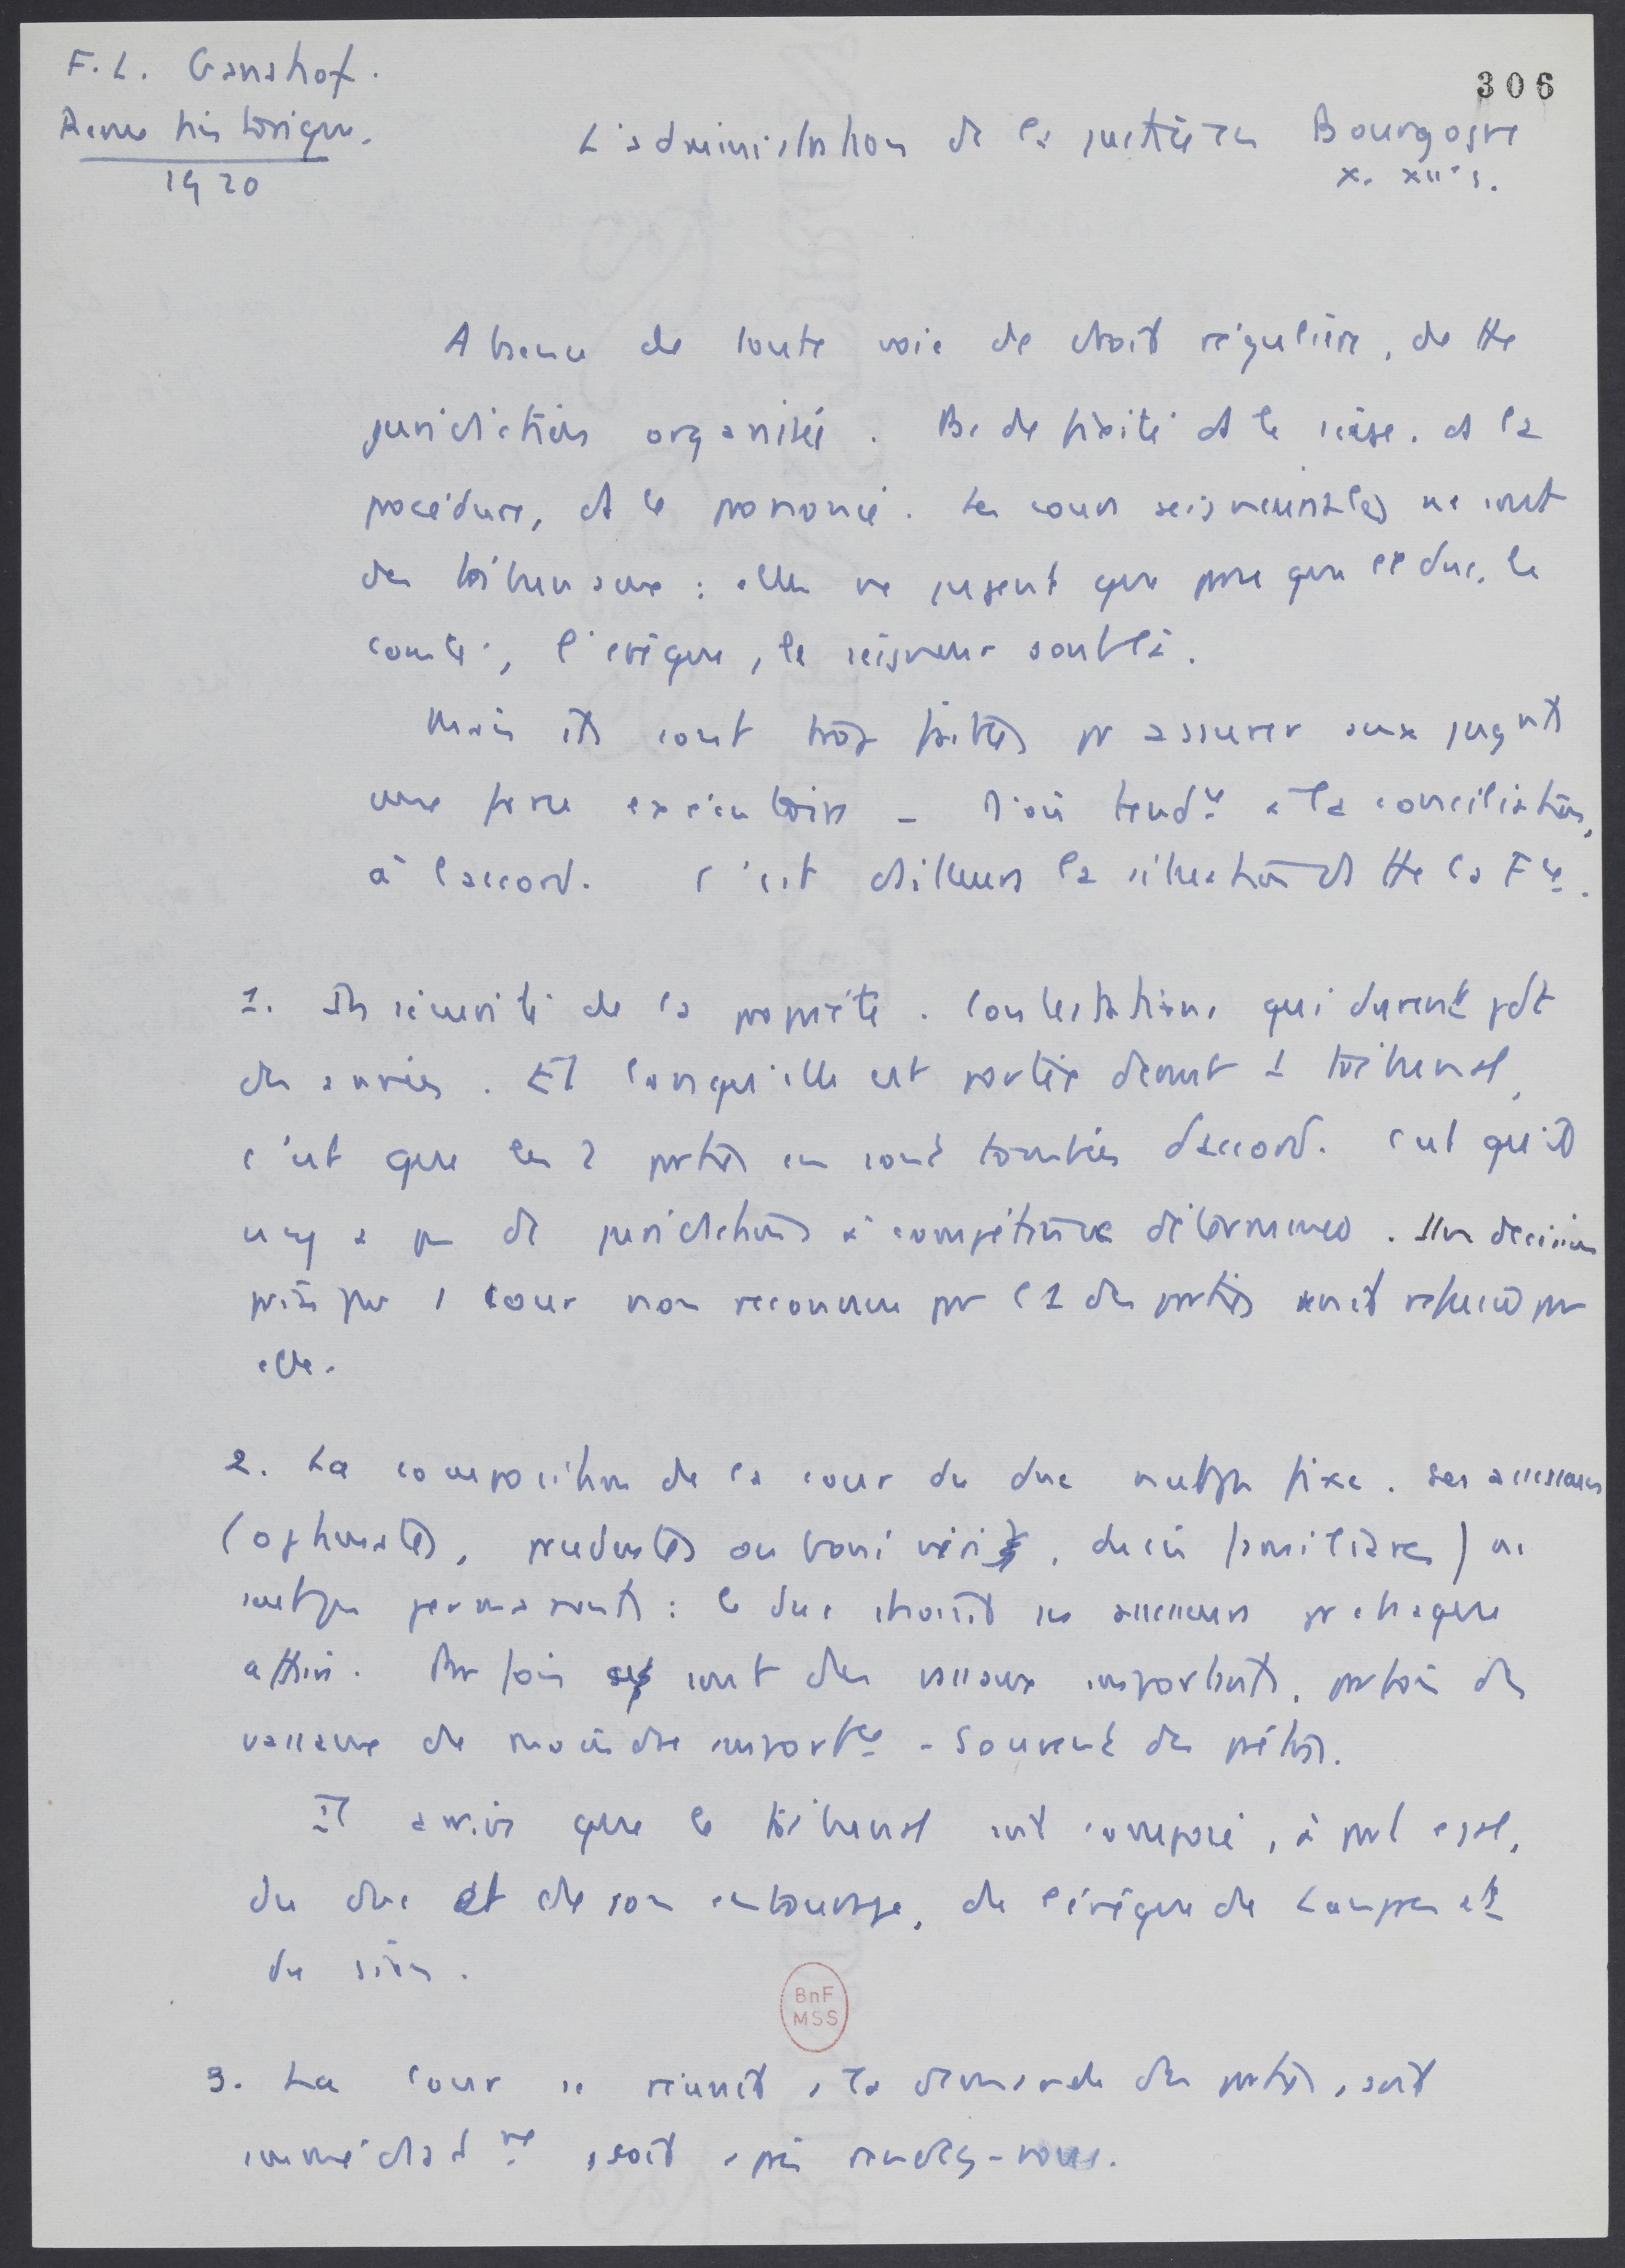 F.L. Ganshof.
306
Revue historique.
1920
L'administration de la justice en Bourgogne
X. XIIe s.
Absence de toute voie de droit régulière, de tte
juridiction organisée. Pas de fixité ds le siège, ds la
procédure, ds le prononcé. Les cours seigneuriales ne sont
des tribunaux : elles ne jugent que parce que le duc, le
comte, l'évêque, le seigneur sont là.
Mais ils sont trop faibles pr assurer aux jugnts
une force exécutoire - D'où tendce à la conciliation,
à l'accord. C'est d'ailleurs la situation ds tte la Fce.
1. Insécurité de la propriété. Contestations qui durent pdt
des années. Et lorsqu'elle est portée devant 1 tribunal,
c'est que les 2 parties en sont tombées d'accord. C'est qu'il
n'y a pas de juridictions à compétence déterminée. Une décision
prise par 1 cour non reconnue par l'1 des parties serait refusée par
elle.
2. La composition de la cour du duc n'est pas fixe. Ses assesseurs
(optimates, prudentes ou boni viri, ducis familiares) ne
sont pas permanents : le duc choisit ses assesseurs pr chaque
affaire. Parfois sont des vassaux importants, parfois des
vassaux de moindre importce - Souvent des prêtres.
Il arrive que le tribunal soit composé, à part égale,
du duc et de son entourage, de l'évêque de Langres et
du sien.
BnF
MSS
3. La cour se réunit à la demande des parties, soit
immédiatme, soit après rendez-vous.